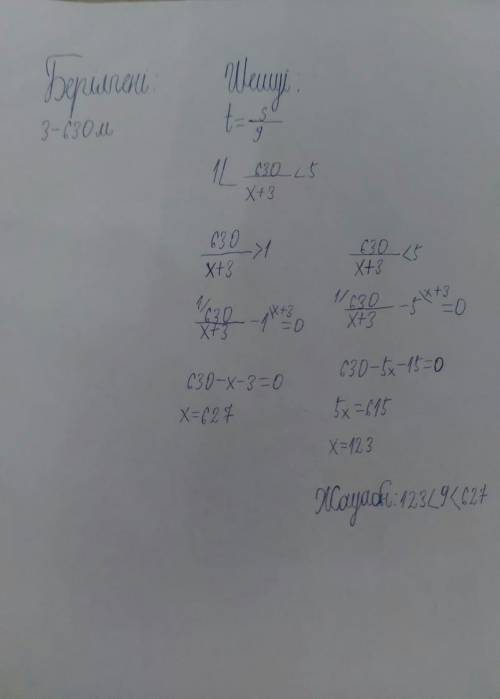 Берилгені:
3-630м
Шешуі:
t=5/9
1< 630/x+3 <5
630/x+3 >1
1/ 630/x+3 -1\x+3 =0
630-x-3=0
x=627
630/x+3 <5
1/ 630/x+3 -5\x+3 =0
630-5x-15=0
5x=615
x=123
Жауабы: 123<9<627